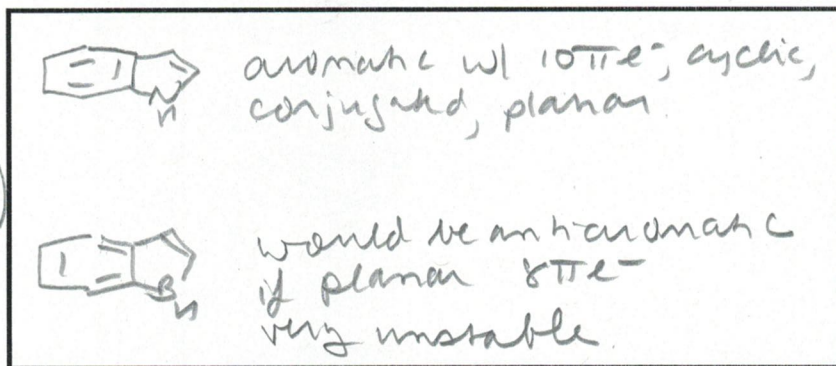 aromatic w/ 10πe⁻, cyclic,
conjugated, planar.
N
H
would be antiaromatic
if planar 8πe⁻
very unstable
B
H